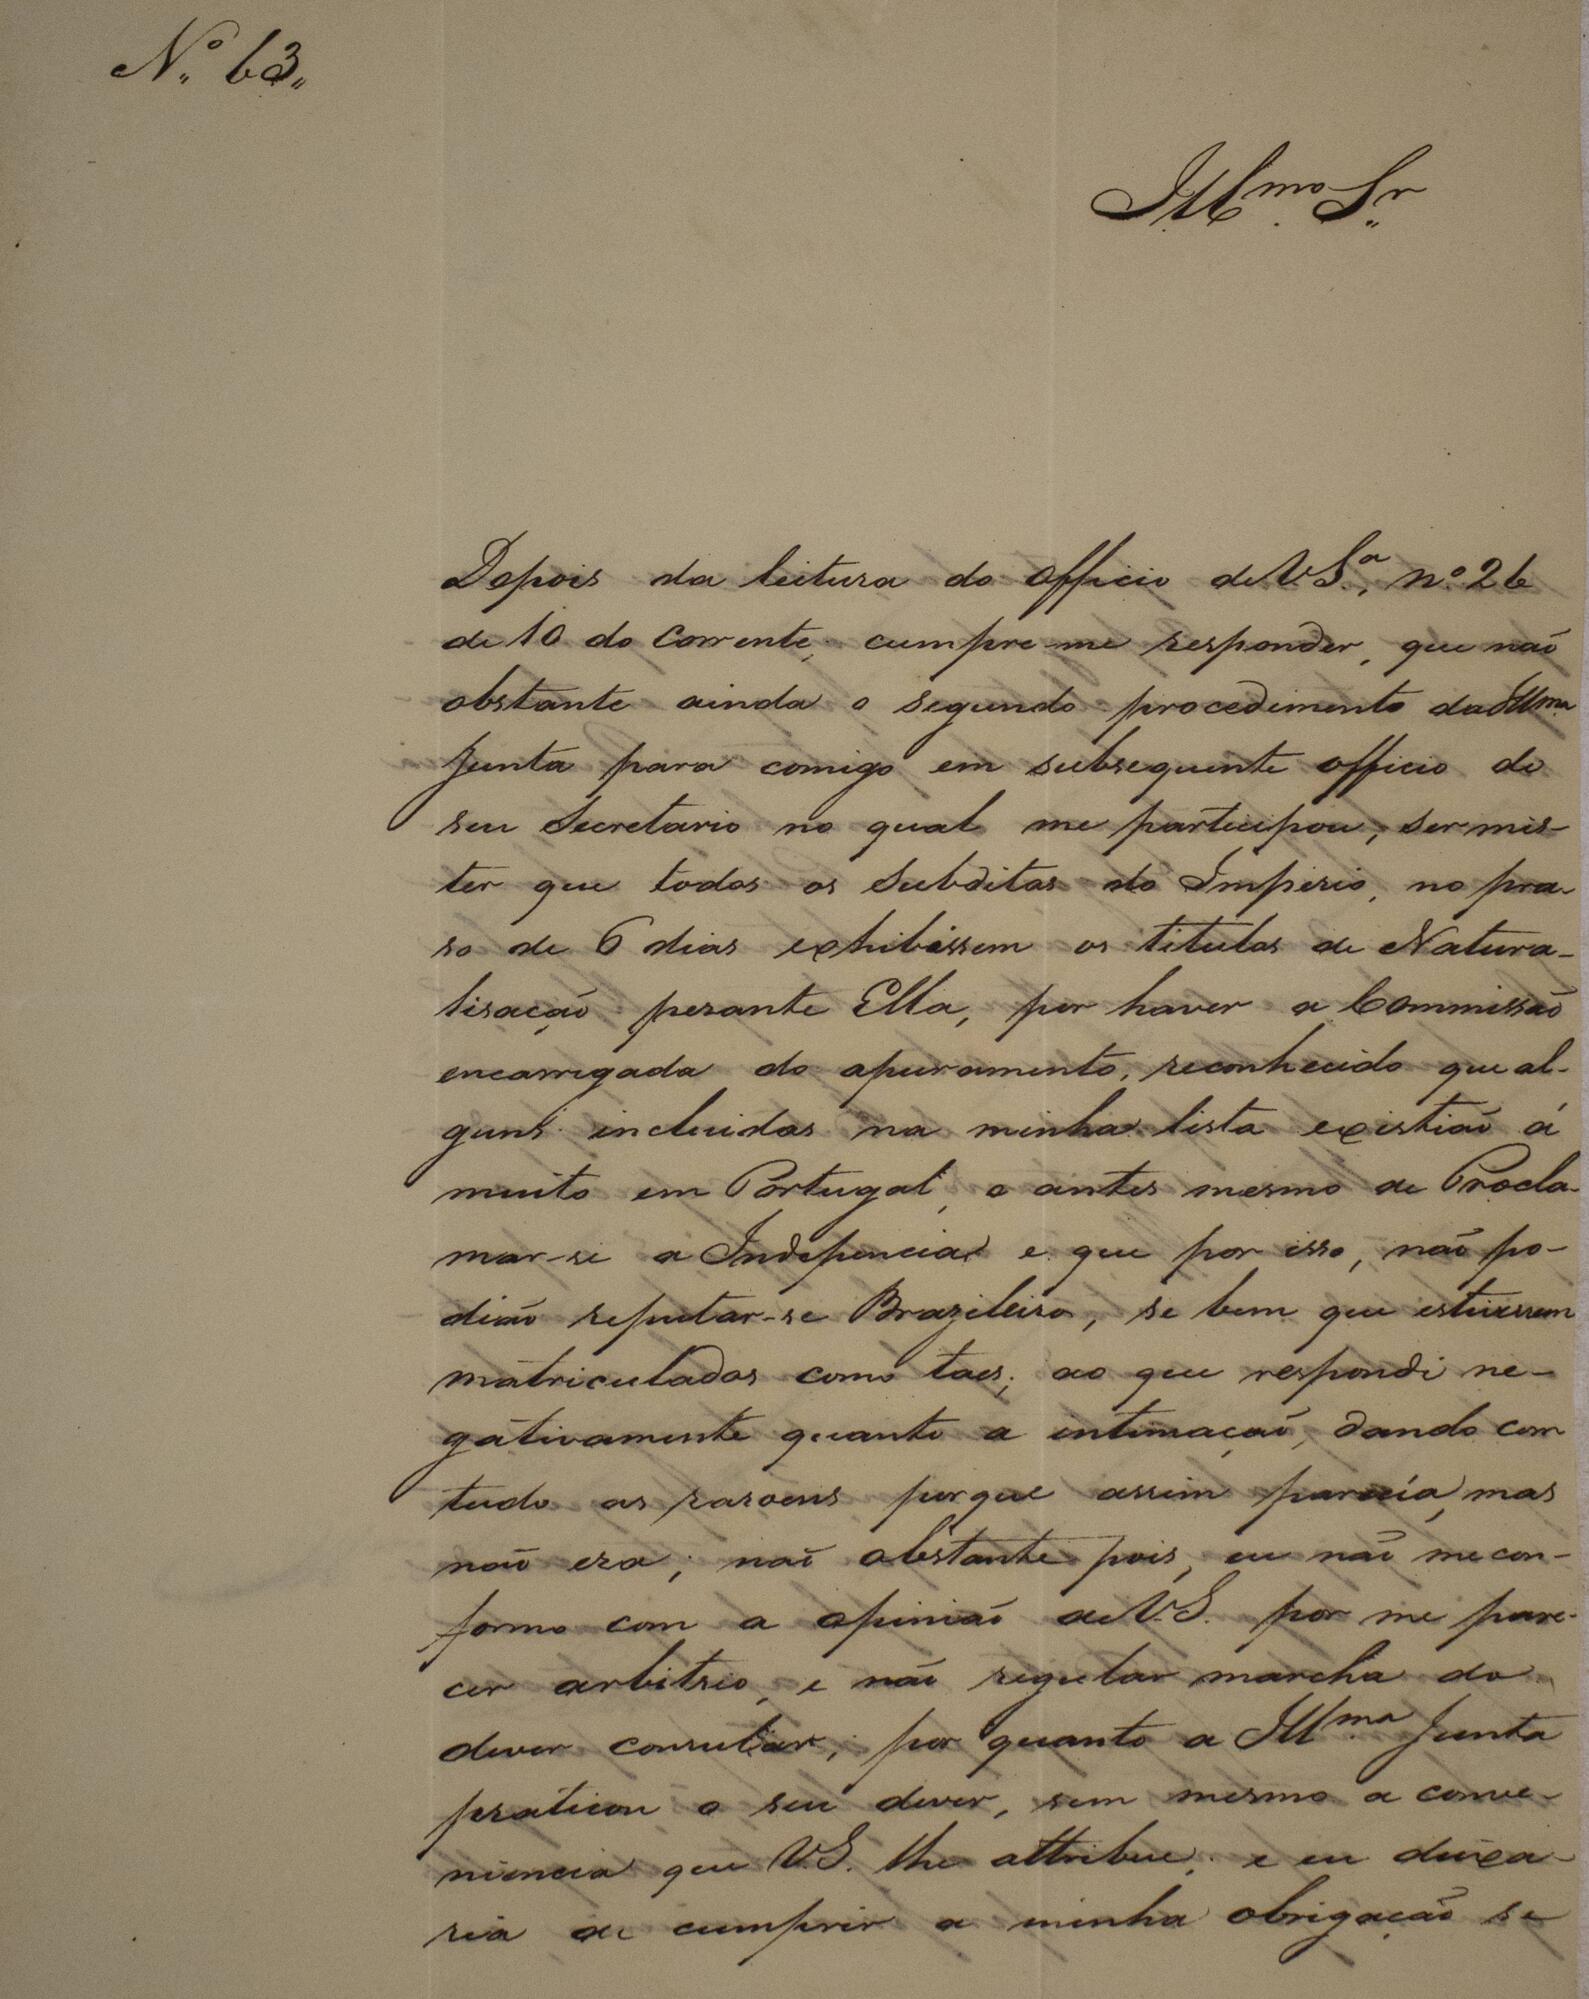 Nº 63.
Illmo Sr
Depois da leitura do Officio de V. Sª, nº 26
de 10 do Corrente, cumpre-me responder, que naõ
obstante ainda o segundo procedimento da Illma
Junta para comigo em subsequente officio do
seu Secretario no qual me participou, ser mis-
ter que todos os Subditos do Imperio, no pra-
so de 6 dias exhibissem os titulos de Natura-
lisação perante Ella, por haver a Commissão
encarregada do apuramento, reconhecido que al-
guns incluidos na minha lista existiaõ á
muito em Portugal, e antes mesmo de Procla-
mar-se a Indepencia e que por isso, não po-
dião reputar-se Brazileiro, se bem que estivessem
matriculados como taes; ao que respondi ne-
gativamente quanto a intimaçaõ, dando com
tudo as rasoens porque assim parecia, mas
naõ era; naõ obstante pois, eu não me con-
formo com a opinião de V. S. por me pare-
cer arbitrio, e não regular marcha do
dever consular, por quanto a Illma Junta
praticou o seu dever, sem mesmo a conve-
niencia que V. S. lhe attribue; e eu deixa-
ria de cumprir a minha obrigação se